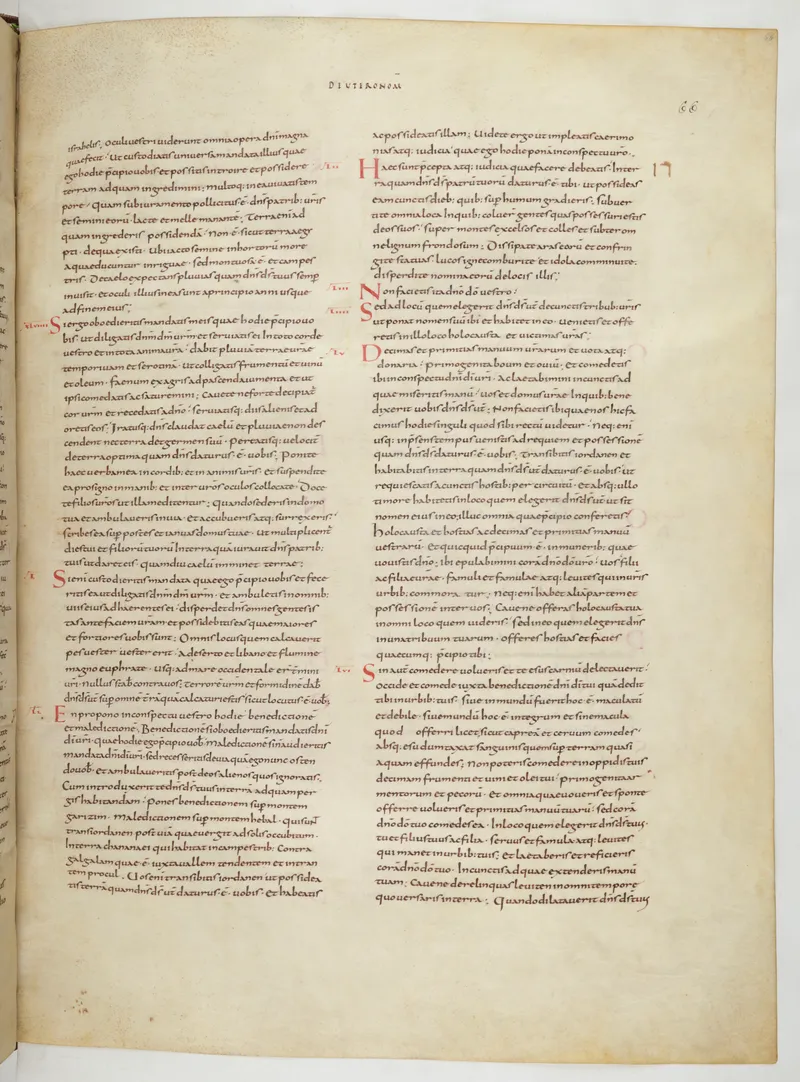 DEUTERONOM
66
israhelis. Oculi uestri uiderunt omnia opera dni magna
quae fecit. Ut custodiatis uniuersa mandata illius quae
ego hodie p̄cipio uobis et possitis introire et possidere
terram ad quam ingredimini; multoq; in ea uiuatis tem
pore. quam sub iuramento pollicitus ē. dn̄s patrib; uris
et semini eorū. lacte et melle manante; Terra enim ad
quam ingrederis possidendā. Non ē. sicut terra aegy
pti. de qua existi. Ubi iacto semine in hortorū more
aquae ducuntur inriguae. sed montuosa ē. et campes
tris. De caelo expectans pluuias quam dn̄s ds̄ tuus semp
inuisit. et oculi illius in ea sunt a principio anni usque
ad finem eius;
Si ergo oboedieritis mandatis meis quae hodie p̄cipio uo
bis. ut diligatis dn̄m dm̄ urm̄ et seruiatis ei In toto corde
uestro et in tota anima urā. dabit pluuiā terrae urae
temporiuam et serotinā. Ut colligatis frumentū et uinū
et oleum. faenum ex agris ad pascenda iumenta et ut
ipsi comedatis ac saturemini; Cauete ne forte decipiat
cor urm̄ et recedatis a dno. seruiatisq; diis alienis et ad
oretis eos. Iratusq; dn̄s claudat caelū et pluuiae non des
cendent nec terra det germen suū. Pereatisq; uelocit
de terra optima quam dn̄s daturus ē. uobis. Ponite
haec uerba mea in cordib; et in animis uris. Et suspendite
ea pro signo in manib; et inter urōs oculos collocate. Doce
te filios urōs ut illa meditentur; Quando sederis in domo
tua et ambulaueris in uia. et accubueris atq; surrexeris.
scribes ea sup postes et ianuas domus tuae. Ut multiplicent
dies tui et filiorū tuorū In terra quā iurauit dn̄s patrib;
tuis ut daret eis. quamdiu caelū inminet terrae;
Si enim custodieritis mandata quae ego p̄cipio uobis et fece
ritis ea ut diligatis dn̄m dm̄ urm̄. et ambuletis in omnib;
uiis eius adhaerentes ei. disperdet dn̄s omnes gentes is
tas ante faciem uram et possidebitis eas quae maiores
et fortiores uobis sunt; Omnis locus quem calcauerit
pes uester uester erit. A deserto et libano et flumine
magno euphrate. usq; ad mare occidentale erunt termini
uri. Nullus stabit contra uos. Terrorē urm̄ et formidinē dabit
dn̄s ds̄ ur̄ sup omnē terrā quā calcaturi estis sicut locutus ē uob;
En propono in conspectu uestro hodie benedictionē
et maledictionē. Benedictionē si oboedieritis mandatis dni
di uri. quae hodie ego p̄cipio uob. Maledictionē si n̄ audieritis
mandata dni di uri. sed recesseritis de uia quā ego nunc osten
do uob. et ambulaueritis post deos alienos quos ignoratis.
Cum introduxerit te dn̄s ds̄ tuus in terrā ad quam per
gis habitandam. Pones benedictionem sup montem
garizim. Maledictionem sup montem hebal. qui sunt
trans iordanen post uiā quae uergit ad solis occubitum.
In terra chananaei qui habitat in campestrib; Contra
galgalam quae ē. iuxta uallem tendentem et intran
tem procul. Uos enim transibitis iordanen ut possidea
tis terrā quam dn̄s ds̄ ur̄ daturus ē. uobis. et habeatis
ac possideatis illam; Uidete ergo ut impleatis caerimo
nias atq; iudicia. quae ego hodie ponā in conspectu uro.
Haec sunt p̄cepta atq; iudicia quae facere debeatis. In ter
ra quam dn̄s ds̄ patrū tuorū daturus ē. tibi. ut possideas
eam cunctis dieb; quib; sup humum gradieris. Subuer
tite omnia loca In quib; coluer̄ gentes quas possessuri estis
deos suos. super montes excelsos et colles et subter om
ne lignum frondosum; Dissipate aras eorū et confrin
gite statuas. lucos igne comburite. et idola comminuite.
disperdite nomina eorū de locis illis;
Non facietis ita dno do uestro.
Sed ad locū quem elegerit dn̄s ds̄ ur̄ de cunctis tribub; uris
ut ponat nomen suū ibi et habitet in eo. Uenietis et offe
retis in illo loco holocausta et uictimas uras;
Decimas et primitias manuum urarum et uota atq;
donaria. primogenita boum et ouiū. Et comedetis
ibi in conspectu dni di uri. Ac laetabimini in cunctis ad
quae miseritis manū. uos et domus urae. In quib; bene
dixerit uobis dn̄s ds̄ ur̄; Non facietis ibi quae nos hic fa
cimus hodie singuli quod sibi rectū uidetur. Neq; enī
usq; in p̄sentem tempus uenistis ad requiem et possessionē
quam dn̄s ds̄ daturus ē. uobis. Transibitis iordanen et
habitabitis in terra quam dn̄s ds̄ ur̄ daturus ē. uobis. ut
requiescatis a cunctis hostib; per circuitū. et absq; ullo
timore habitetis in loco quem elegerit dn̄s ds̄ ur̄ ut sit
nomen eius in eo; Illuc omnia quae p̄cipio conferetis.
holocausta et hostias ac decimas et primitias manuū
uestrarū. Et quicquid p̄cipuum ē. in munerib; quae
uouistis dno; ibi epulabimini corā dno do uro. uos filii
ac filiae urae. famuli et famulae atq; leuites qui in uris
urbib; commoratur. Neq; enī habet aliā partem et
possessionē inter uos; Caue ne offeras holocausta tua
in omni loco quem uideris. sed in eo quem elegerit dn̄s
in una tribuum tuarum. offeres hostias et facies
quaecumq; p̄cipio tibi;
Sin aut comedere uolueris et te esus carniū delectauerit.
Occide et comede iuxta benedictionē dni di tui quā dedit
tibi in urbib; tuis. siue inmundū fuerit hoc ē. maculatū
et debile. siue mundū hoc ē. integrum et sine macula
quod offerri licet. sicut capreā et ceruum comedes.
absq; esu dumtaxat sanguinis quem sup terram quasi
aquam effundes; Non poteris comedere in oppidis tuis
decimam frumenti et uini et olei tui. primogenita ar
mentorum et pecorū. Et omnia quae uoueris et sponte
offerre uolueris et primitias manuū tuarū. sed corā
dno do tuo comedes ea. In loco quem elegerit dn̄s ds̄ tuus.
tu et filius tuus ac filia. seruus et famula atq; leuites
qui manet in urbib; tuis; Et laetaberis et reficieris
corā dno do tuo. In cunctis ad quae extenderis manū
tuam; Caue ne derelinquas leuiten in omni tempore
quo uersaris in terra; Quando dilatauerit dn̄s ds̄ tuus